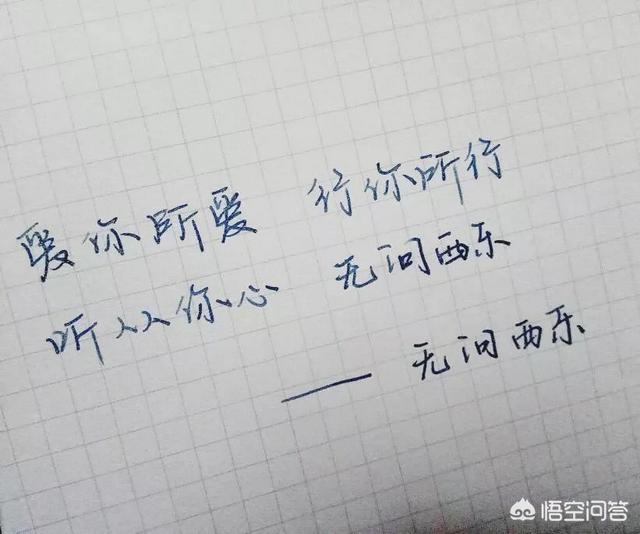 爱你所爱 行你所行
听从你心 无问西东
—— 无问西东
悟空问答